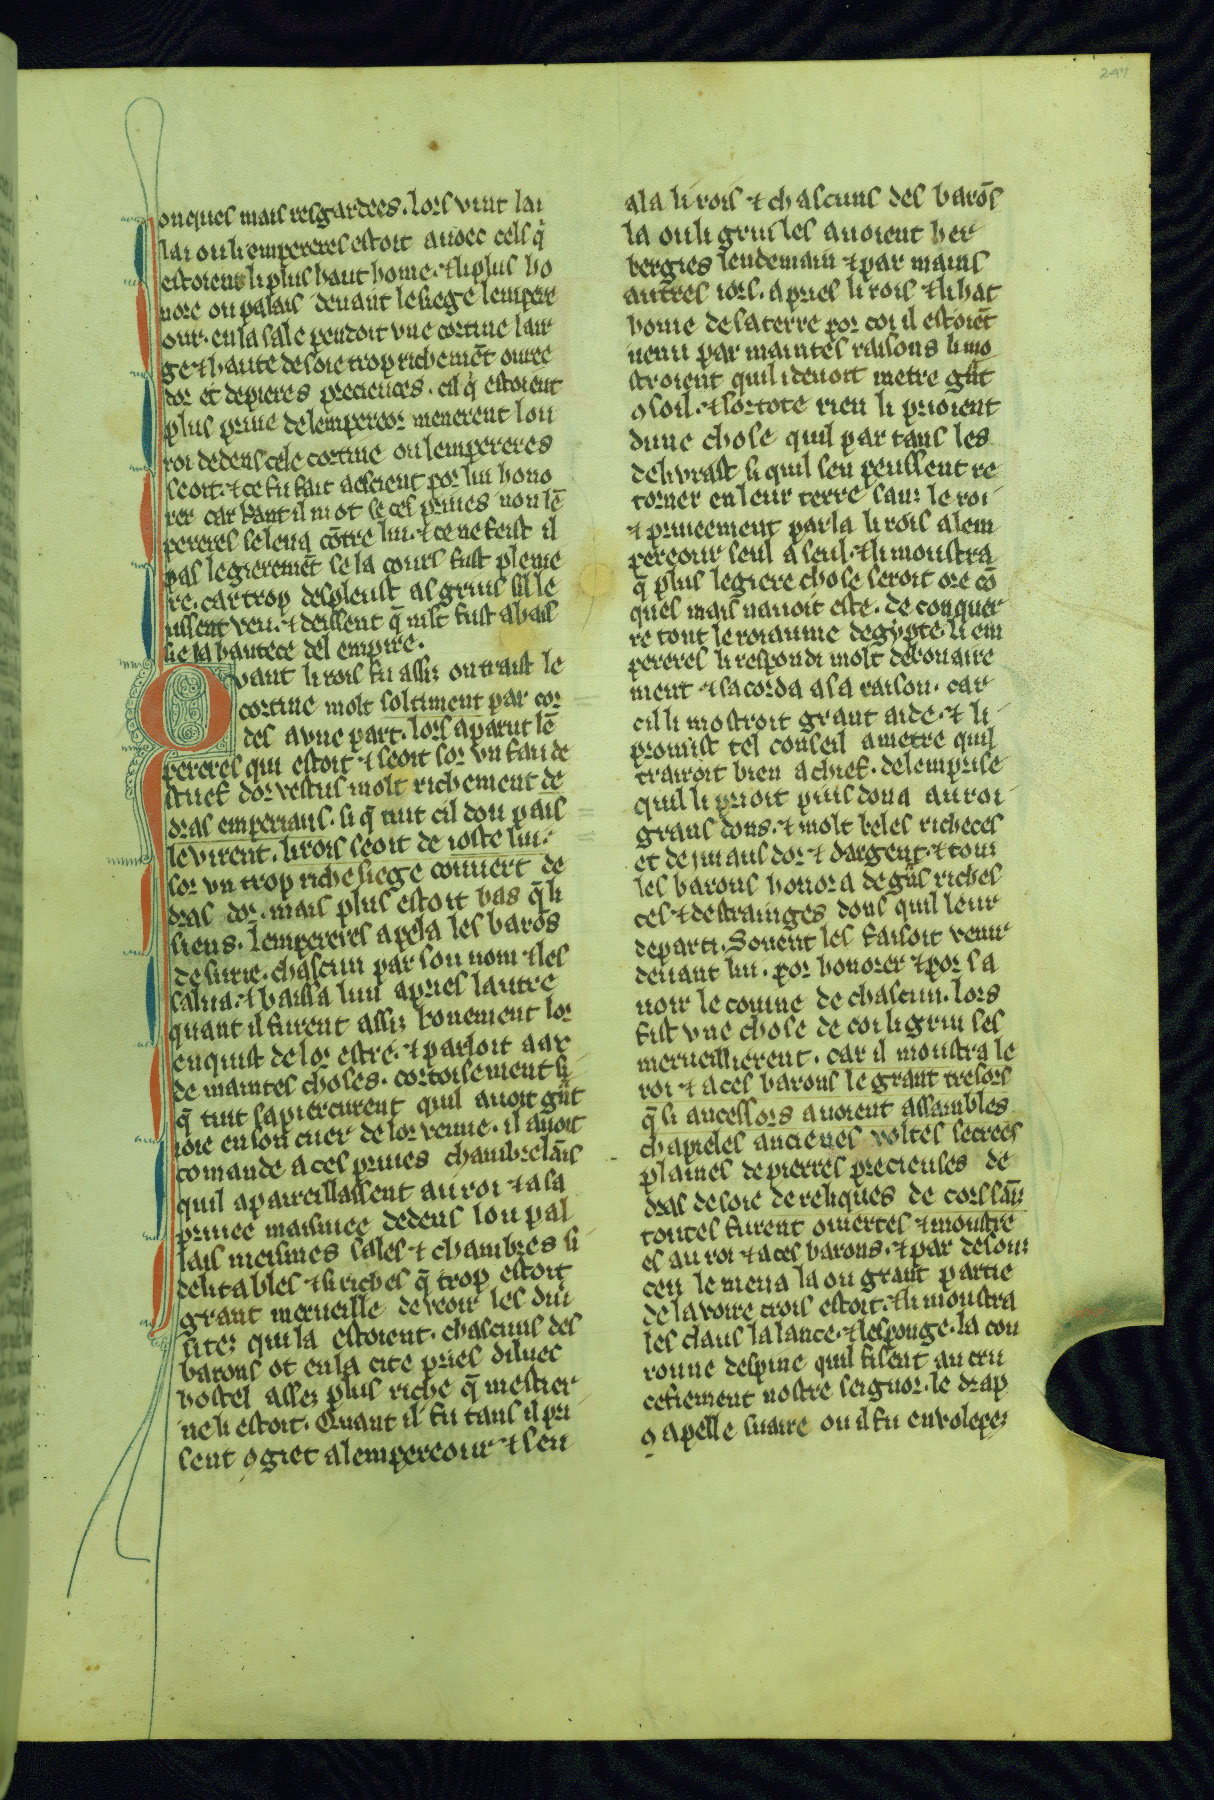 247
onques mais resgardees. lors vint lai
lai ou li empereres estoit auoec cels q̃
estoient li plus haut home. ⁊ li plus ho
nore ou palais deuant le siege lempere
our. en la sale pendoit vne cortine lar
ge ⁊ haute de soie trop richemēt ouree
dor et de pieres precieuces. cil q̃ estoient
plus priue de lempereor menerent lou
roi dedens cele cortine ou lempereres
seoit. ⁊ ce fu fait a escient por lui hono
rer car kant il mot se ces priues non lē
pereres se leua cōtre lui. ⁊ ce ne feist il
pas legieremēt se la cours fust plenie
re. car trop despleust as griuis sil le
uissent veu. ⁊ deissent q̃ mlt fust abais
sie la hautece del empire.
Quant li rois fu assiz on traist le
cortine molt soltiment par cor
des a vne part. lors aparut lē
pereres qui estoit ⁊ seoit sor vn fau de
stuef dor vestus molt richement de
dras emperiaus. si q̃ tuit cil dou pais
le virent. li rois seoit de ioste lui.
sor vn trop riche siege couuert de
dras dor. mais plus estoit bas q̃ li
siens. lempereres apela les barōs
de surie. chascun par son nom ⁊ les
salua. ⁊ baissa lun apries lautre
quant il furent assiz bonement lor
enquist de lor estre. ⁊ parloit a ax
de maintes choses. cortoisement si
q̃ tuit sapiercurent quil auoit grāt
ioie en son cuer de lor venue. il auoit
comande a ces priues chambrelāis
quil apareillassent au roi ⁊ a sa
priuee maisniee dedens lou pal
lais meismes sales ⁊ chambres si
delitables ⁊ si riches q̃ trop estoit
grant merueille de veoir les diui
sitez qui la estoient. chascuns des
barons ot en la cite pries diluec
hostel assez plus riche q̃ mestier
ne li estoit. Quant il fu tans il pri
sent ꝯgiet al empereour ⁊ sen
ala li rois ⁊ chascuns des barōs
la ou li griu les auoient her
bergies lendemain ⁊ par mains
autres iors. apries li rois ⁊ li hat
home de sa terre por coi il estoiēt
uenu par maintes raisons li mo
stroient quil i deuoit metre grāt
ꝯsoil. ⁊ sor tote rien li prioient
dune chose quil par tans les
deliurast si quil sen peussent re
torner en leur terre sauz le roi
⁊ priueement parla li rois alem
pereour seul a seul. ⁊ li moustra
q̃ plus legiere chose seroit ore cō
ques mais nauoit este. de conquer
re tout le roiaume degypte. li em
pereres li respondi molt debonaire
ment ⁊ sacorda a sa raison. car
cil li mostroit grant aide. ⁊ li
promist tel conseil a metre quil
trairoit bien a chief. de lemprise
quil li prioit puis dona au roi
grans dons. ⁊ molt beles richeces
et de iuiaus dor ⁊ dargent. ⁊ touz
les barons honora de grās riches
ces ⁊ destrainges dons quil leur
departi. Souent les faisoit venir
deuant lui. por honorer ⁊ por sa
uoir le couine de chascun. lors
fist vne chose de coi li griu ses
merueillierent. car il moustra le
roi ⁊ a ces barons le grant tresors
q̃ si ancessors auoient assambles
chapieles ancienes voltes secrees
plaines de pierres precieuses de
dras de soie de reliques de cors sāīz
toutes furent ouuertes ⁊ moustre
es au roi ⁊ a ces barons. ⁊ par desouz
ceu le mena la ou grant partie
de la voire crois estoit. ⁊ li moustra
les claus la lance. ⁊ lesponge. la cou
ronne despine quil fisent au cru
cefiement nostre seignor. le drap
ꝯ apelle suaire ou il fu enuolepez